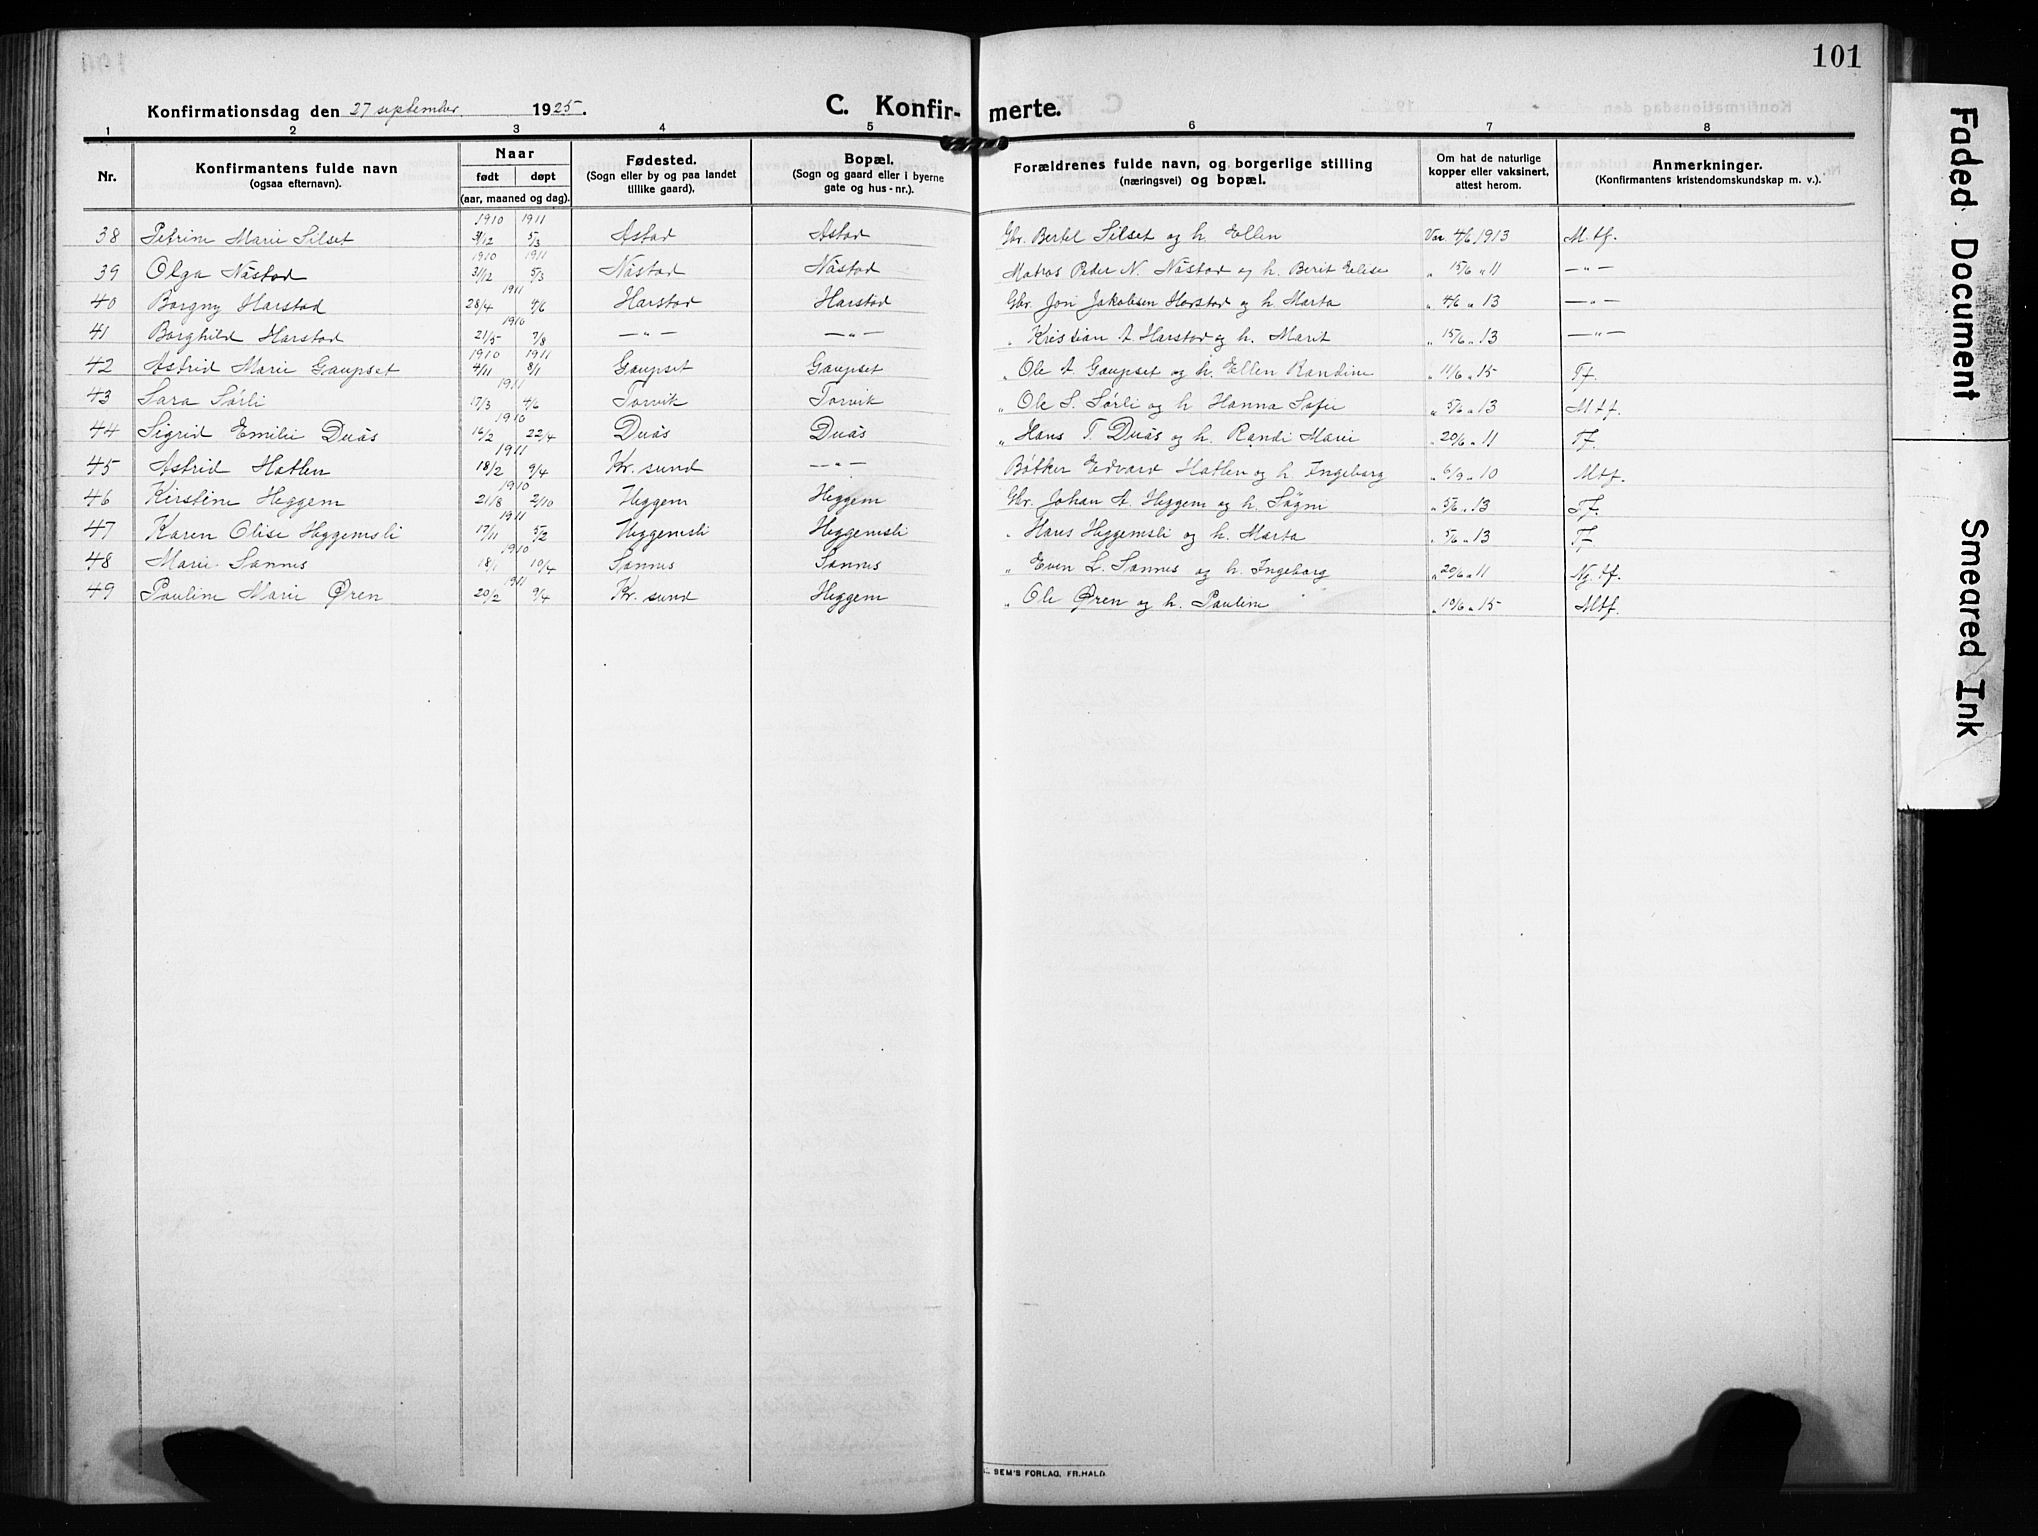 101
Konfirmationsdag den 27 september 1925. C. Konfir- merte.
1 2 3 4 5 6 7 8
Nr. Konfirmantens fulde navn (ogsaa efternavn). Naar født døpt (aar, maaned og dag). Fødested. (Sogn eller by og paa landet tillike gaard). Bopæl. (Sogn og gaard eller i byerne gate og hus-nr.). Forældrenes fulde navn, og borgerlige stilling (næringsvei) og bopæl. Om hat de naturlige kopper eller vaksinert, attest herom. Anmerkninger. (Konfirmantens kristendomskundskap m. v.).
1910 1911
38 Petrine Marie Silset 31/12 5/3 Astad Astad Gbr. Bertel Silset og h. Ellen Vac. 4/6 1913 M.tf.
1910 1911
39 Olga Nåstad 31/12 5/3 Nåstad Nåstad Matros Peder N. Nåstad og h. Berit Elise " 15/6 " 11 — " —
1911
40 Borgny Harstad 28/4 4/6 Harstad Harstad Gbr. Jon Jakobsen Harstad og h. Marta " 4/6 " 13 — " —
1910
41 Borghild Harstad 21/5 7/8 — " — — " — " Kristian A. Harstad og h. Marit " 15/6 " 13 — " —
1910 1911
42 Astrid Marie Gaupset 4/11 8/1 Gaupset Gaupset " Ole A. Gaupset og h. Ellen Randine " 11/6 " 15 Tf.
1911
43 Sara Sørli 17/3 4/6 Torvik Torvik " Ole S. Sørli og h Hanna Sofie " 5/6 " 13 Mtf.
1910
44 Sigrid Emilie Duås 16/2 22/4 Duås Duås " Hans T. Duås og h. Randi Marie " 20/6 " 11 Tf.
1911
45 Astrid Hatlen 18/2 9/4 Kr. sund — " — Bøtker Edvard Hatlen og h Ingeborg " 6/9 " 10 Mtf.
1910
46 Kirstine Heggem 21/8 2/10 Heggem Heggem Gbr. Johan A. Heggem og h. Søgni " 5/6 " 13 Tf.
1911
47 Karen Olise Heggemsli 17/11 5/2 Heggemsli Heggemsli " Hans Heggemsli og h. Marta " 5/6 " 13 Tf
1910
48 Marie Sannes 18/1 10/4 Sannes Sannes " Even L. Sannes og h. Ingeborg " 20/6 " 11 Ng. tf.
1911
49 Pauline Marie Øren 20/2 9/4 Kr. sund Heggem " Ole Øren og h. Pauline " 10/6 " 15 Mtf.
SEM'S FORLAG, FR.HALD.
Faded Document
Smeared Ink